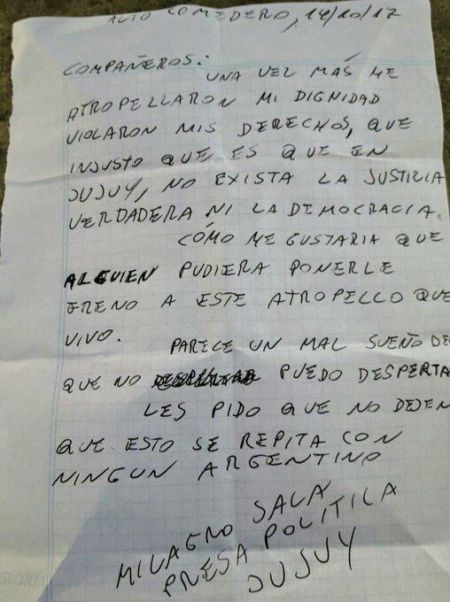 ALTO COMEDERO, 14/10/17
COMPAÑEROS:
UNA VEZ MÁS ME
ATROPELLARON MI DIGNIDAD
VIOLARON MIS DERECHOS, QUE
INJUSTO QUE ES QUE EN
JUJUY, NO EXISTA LA JUSTICIA
VERDADERA NI LA DEMOCRACIA.
CÓMO ME GUSTARIA QUE
ALGUIEN PUDIERA PONERLE
FRENO A ESTE ATROPELLO QUE
VIVO.
PARECE UN MAL SUEÑO DE
QUE NO PUEDO DESPERTA
LES PIDO QUE NO DEJEN
QUE ESTO SE REPITA CON
NINGUN ARGENTINO
MILAGRO SALA
PRESA POLITICA
JUJUY
GLORIA